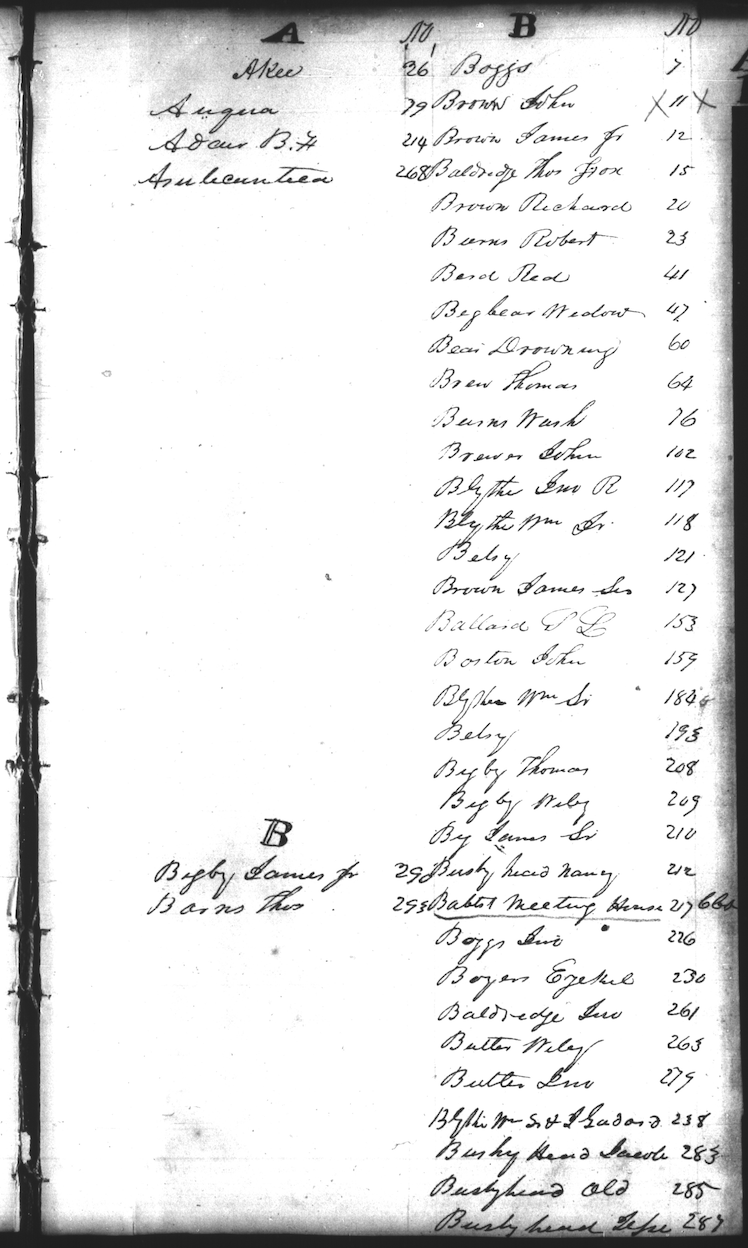 A No
Akee 26
Auqua 79
Adair B. F 214
268
B
Bigby James Jr 290
Barns Thos 293
B No
Boggs 7
Brown John X 11 X
Brown James Jr 12
Baldridge Thos 15
Brown Richard 20
Burns Robert 23
Berd Red 41
Bigbear Widow 47
Bear Drowning 60
Brew Thomas 64
Burns Wash 76
Brewer John 102
Blythe Jno R 117
Blythe Wm Jr. 118
Betsy 121
Brown James Sen 127
Ballard L 153
Boston John 159
Blythe Wm Sr 184
Betsy 193
Bigby Thomas 208
Bigby Wiley 209
By James Sr 210
Bushy head Nancy 212
Babtst Meeting House 217
Boggs Jno 226
Boyers Ezekiel 230
Baldridge Jno 261
Butler Wiley 263
Butler Jno 279
Blythe Wm Sr & J 238
Bushy Head Jacob 283
Bushyhead Old 285
Bushyhead Jesse 287